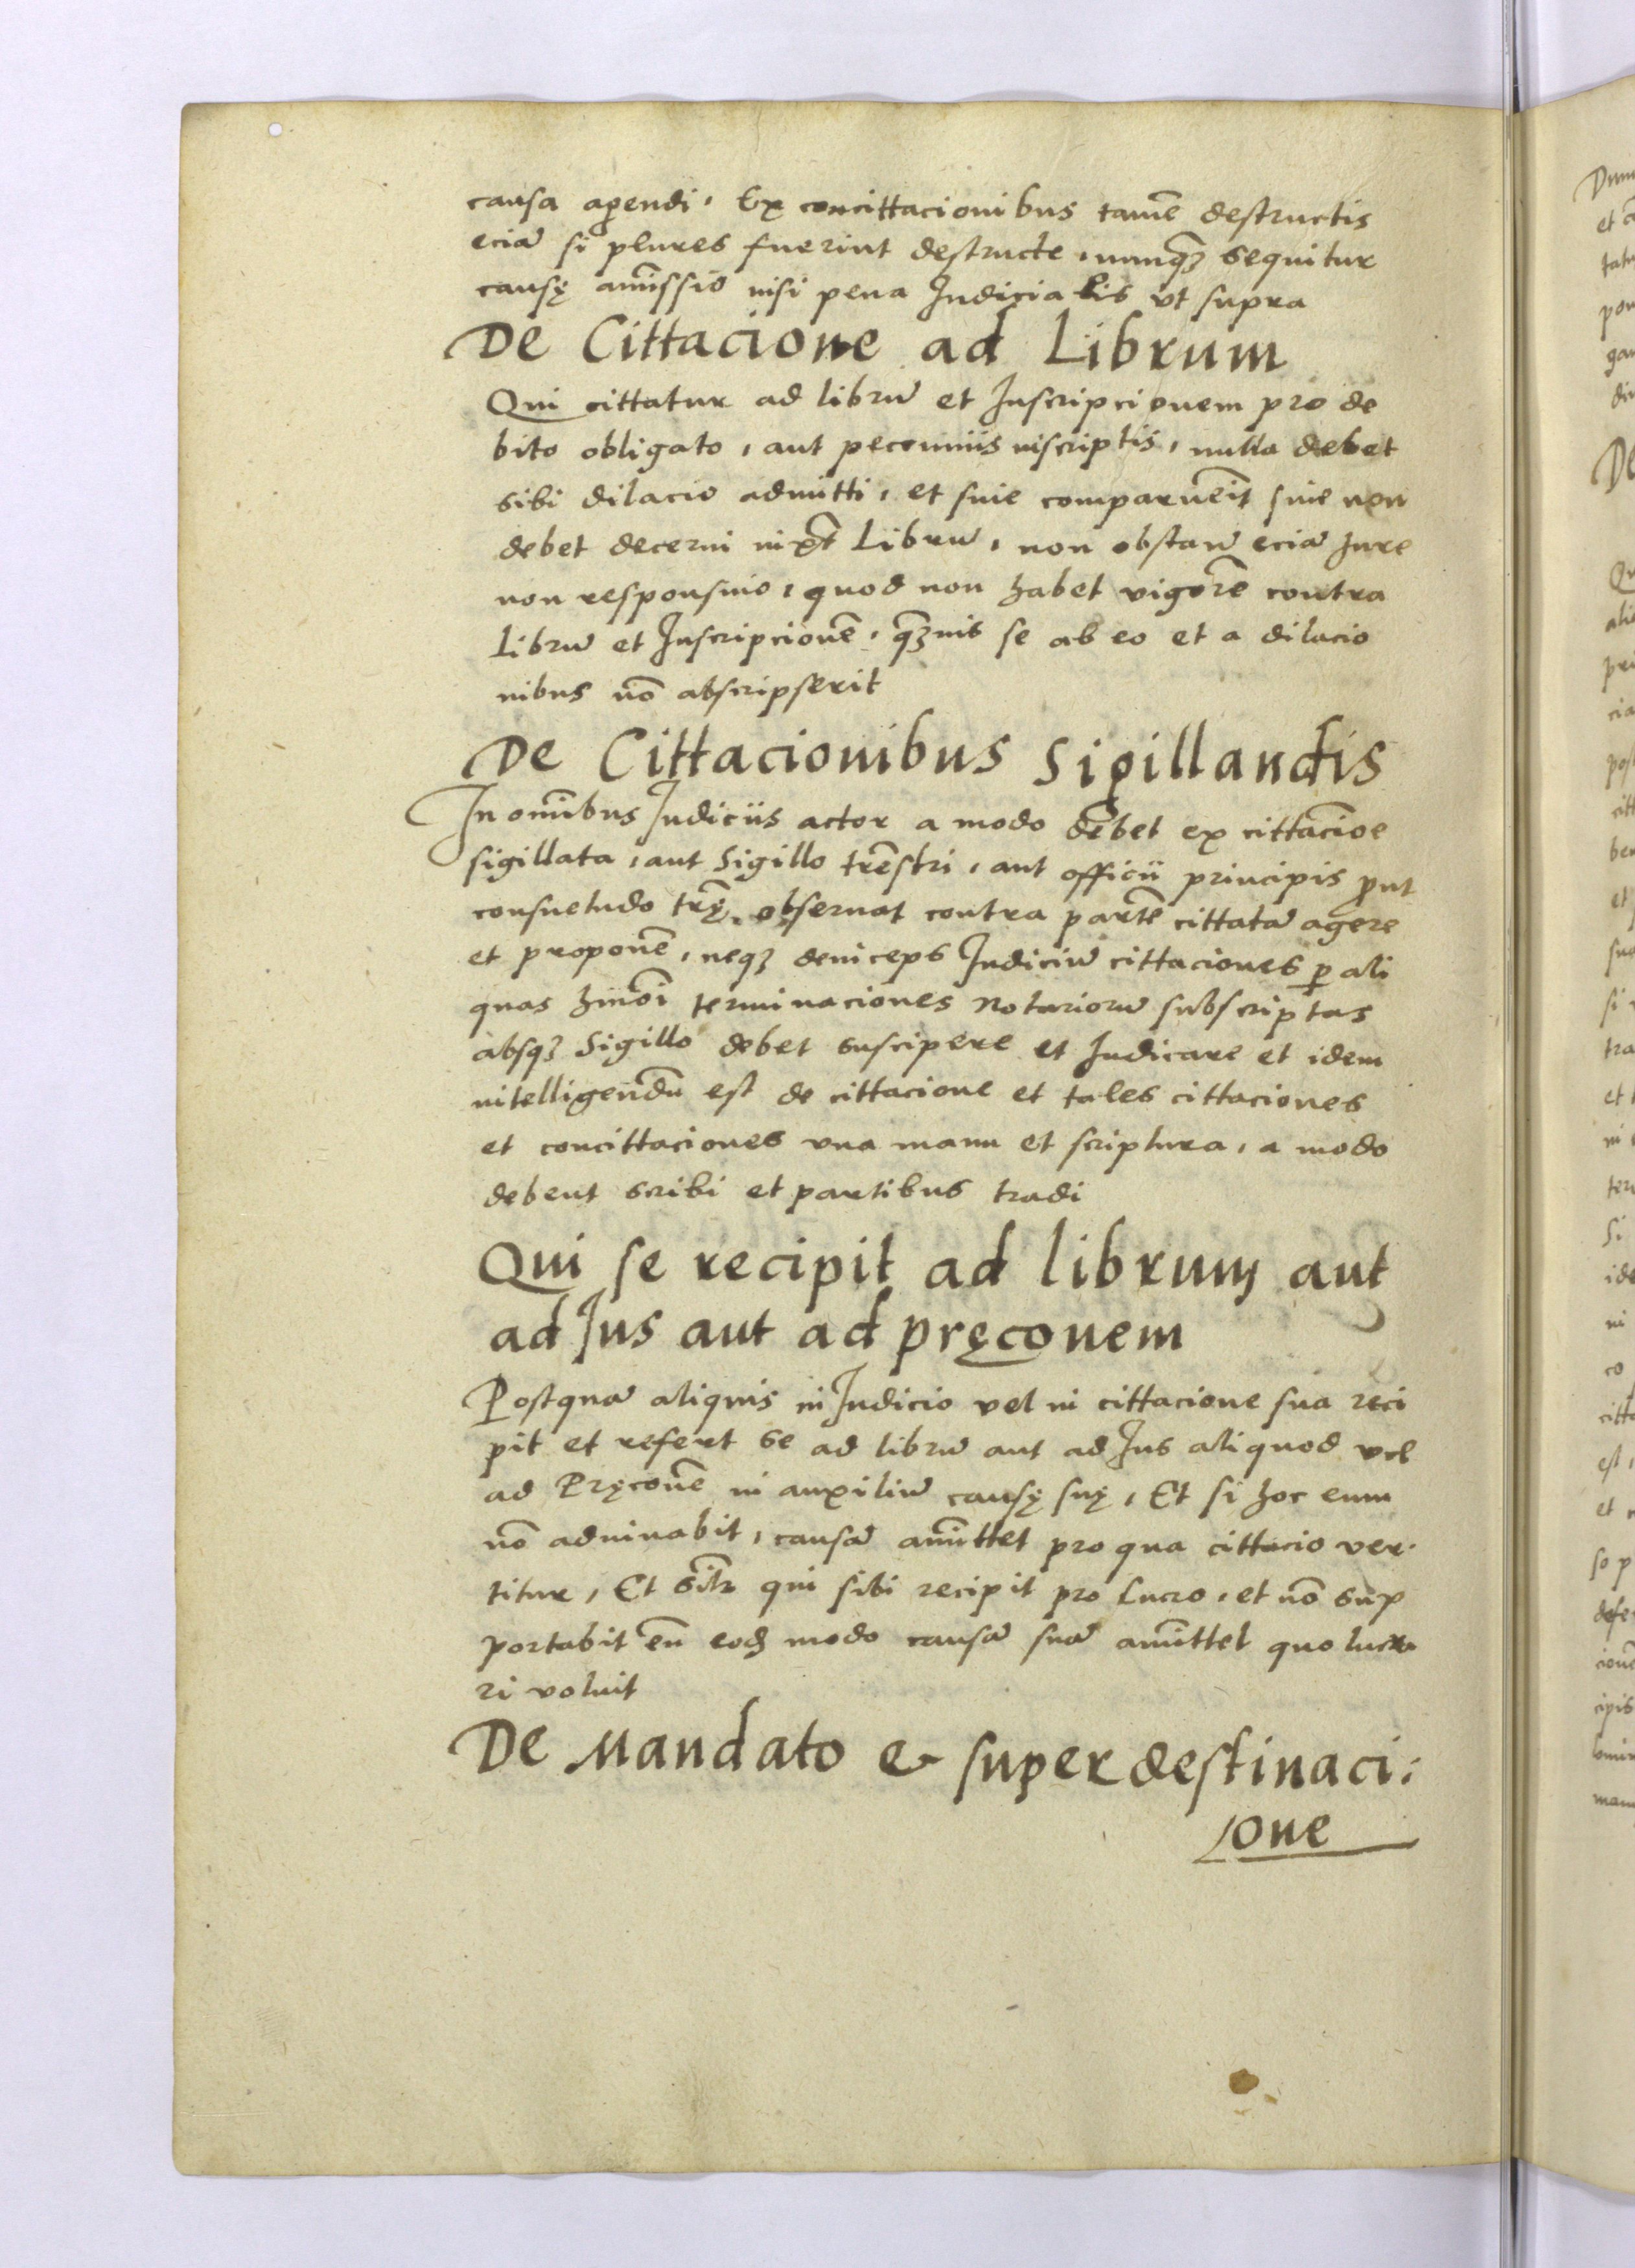 causa agendi, Ex concittacionibus tamē destructis
eciā si plures fuerint destructe, nunq̄ȝ sequitur
causę amissio nisi pena Iudicialis vt supra
De Cittacione ad Librum
Qui cittatur ad librū et Inscripcionem pro de
bito obligato, aut pecuniis inscriptis, nulla debet
sibi dilacio admitti, et siue comparuerit siue non
debet decerni iuxt̄ Librū, non obstan̄ eciā Iure
non responsiuo, quod non habet vigorē contra
librū et Inscripcionē, q̄ȝuis se ab eo et a dilacio
nibus nō abscripserit
De Cittacionibus Sigillandis
In omībus Iudiciis actor a modo debet ex cittacīoe
sigillata, aut Sigillo trēstri, aut officii principis ꝓut
consuetudo trę̄ obseruat contra partē cittatā agere
et proponē, neqȝ deinceps Iudiciū cittaciones ꝑ ali
quas hmōi terminaciones Notariorū subscriptas
absqȝ Sigillo debet suscipere et Iudicare et idem
intelligendū est de cittacione et tales cittaciones
et concittaciones vna manu et scriptura, a modo
debent scribi et partibus tradi
Qui se recipit ad librum aut
ad Ius aut ad pręconem
Postquā aliquis in Iudicio vel in cittacione sua reci
pit et refert se ad librū aut ad Ius aliquod vel
ad Pręconē in auxiliū causę suę, Et si hoc eum
nō adiuuabit, causā amīttet pro qua cittacio ver
titur, Et sil̄r qui sibi recipit pro Lucro, et nō sup
portabit eū eodȝ modo causā suā amīttet quo lucra
ri voluit
De Mandato & superdestinaci:
one